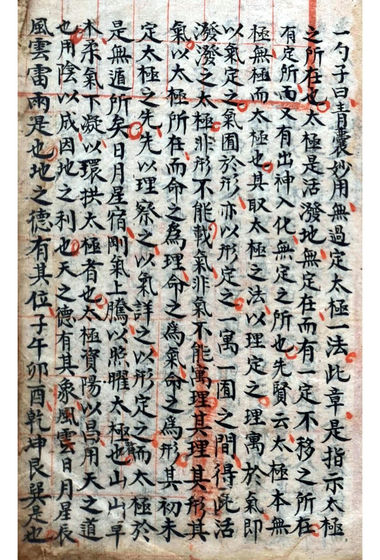 一勺子曰青囊妙用無過定太極一法此章是指示太極
之所在也太極是活潑地無定在而有一定不移之所在
有定所而又有出神入化無定之所也先賢云太極本無
極無極而太極也其取太極之法以理定之理寓於氣即
以氣定之氣囿於形亦以形定之一寓一囿之間得此活
潑潑之太極非形不能載氣非氣不能寓理其理其形其
氣以太極所在而命之為理命之為氣命之為形其初未
定太極之先先以理察之以氣詳之以形定之而太極於
是無遁所矣日月星宿剛氣上騰以照曜太極也山川草
木柔氣下凝以環拱太極者也太極資陽以昌用天之道
也用陰以成因地之利也天之德有其象風雲日月星辰
風雲雷雨是也地之德有其位子午卯酉乾坤艮巽是也